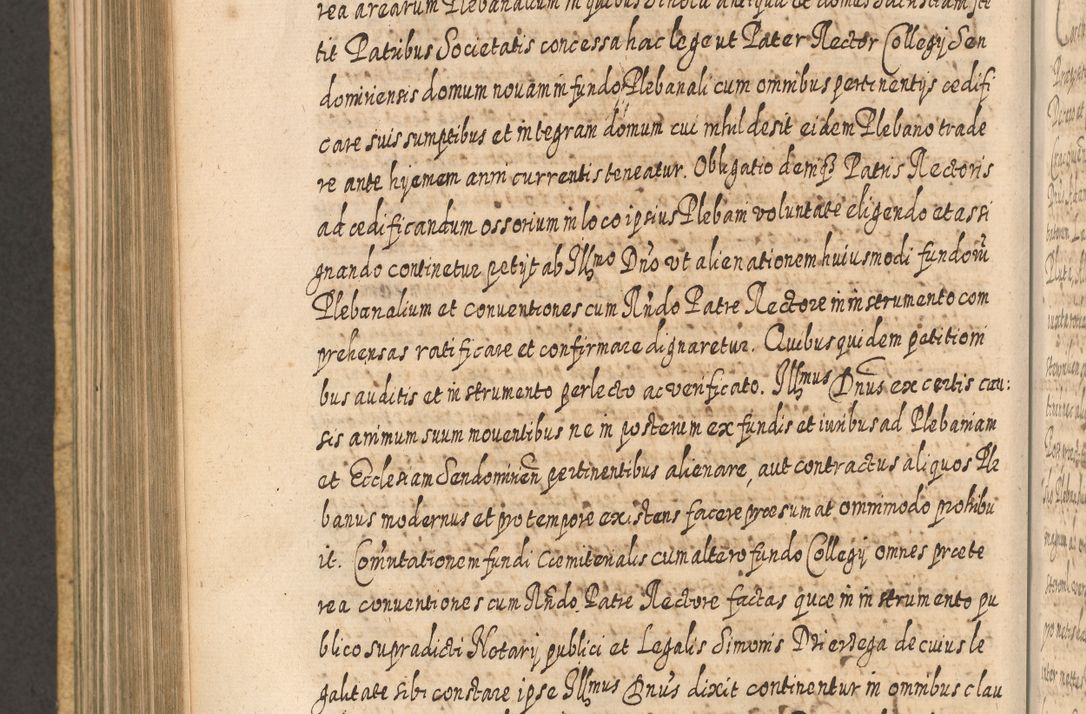 rea arearum Plebanalium in quibus Schola antiqua et domus
tit Patribus Societatis concessa hac lege ut Pater Rector Collegÿ Sen
domiriensis domum novam in fundo Plebanali cum omnibus pertinentÿs ædifi
care suis sumptibus et integram domum cui nihil desit eidem Plebano trade
re ante hyemem anni currentis teneatur. Obligatio demq3 Patris Rectoris
ad ædificandum ossorium in loco ipsius Plebani voluntate eligendo et assi
gnando continetur petÿt ab Illmo Dno ut alienationem huiusmodi fundorũ
Plebanalium et conventiones cum Rñdo Patre Rectore in instrumento com
prehensas ratificare et confirmare dignaretur. Quibus quidem petitioni
bus auditis et instrumento perlecto ac verificato. Illmus Dnus ex certis cau:
sis animum suum moventibus ne in posterum ex fundis et iuribus ad Plebaniam
et Ecclesiam Sendomirieñ pertinentibus alienare, aut contractus aliquos Ple
banus modernus et pro tempore existens facere præsumat omnimodo prohibu
it. Com̃utationem fundi Cæmiterialis cum altero fundo Collegÿ omnes præte
rea conventiones cum Rñdo Patre Rectore factas quæ in instrumento pu
blico supradicti Notarÿ publici et Legalis Simonis de cuius le
galitate sibi constare ipse Illmus Dnus dixit continentur in omnibus clau